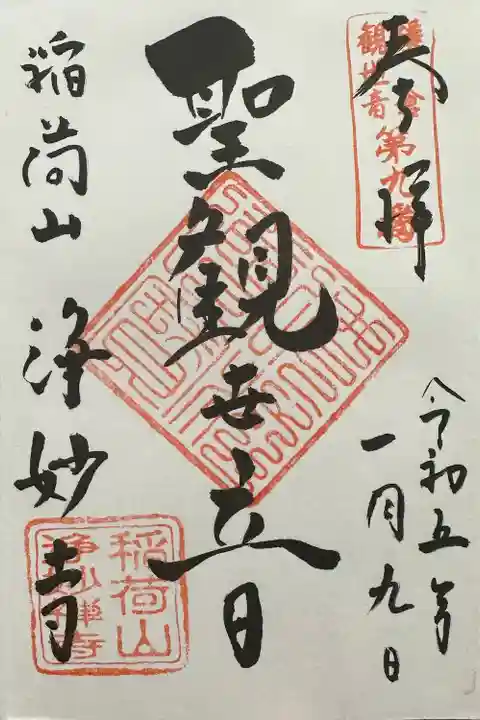 奉拝
鎌倉
観世音
第九番
令和五年
一月九日
聖観世音
稲荷山 浄妙寺
稲荷山
浄妙禅寺